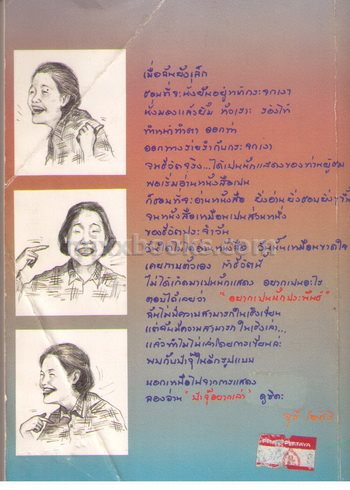 เมื่อฉันยังเล็ก
ชอบที่จะนั่งยิ้มอยู่หน้ากระจกเงา
นั่งมองแล้วยิ้ม หัวเราะ ร้องไห้
ทำหน้าทำตา ออกท่า
ออกทางร่ายรำกับกระจกเงา
จนชีวิตจริง...ได้เป็นนักแสดงของท่านผู้ชม
พอเริ่มอ่านหนังสือเป็น
ก็ชอบที่จะอ่านหนังสือ ยิ่งอ่านยิ่งชอบ
จนหนังสือเหมือนเป็นส่วนหนึ่ง
ของชีวิตประจำวัน
วันไหนไม่ได้อ่านหนังสือ วันนั้นเหมือนขาดใจ
เคยถามตัวเอง ถ้าชีวิตนี้
ไม่ได้เกิดมาเป็นนักแสดง อยากเป็นอะไร
ตอบได้เลยว่า "อยากเป็นนักประพันธ์"
ฉันไม่มีความสามารถในเชิงเขียน
แต่ฉันมีความสามารถในเชิงเล่า...
แล้วทำไมไม่เล่าโดยการเขียนล่ะ
พบกับป้าจุ๊ในอีกรูปแบบ
นอกเหนือไปจากการแสดง
ลองอ่าน "ป้าจุ๊อยากเล่า" ดูซิคะ
จุรี